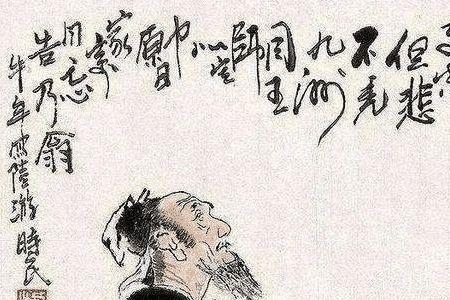 但悲
不見
九洲
同王
師
北定
中
原日
家祭
毋忘
告乃翁
午年寫陸游 時民